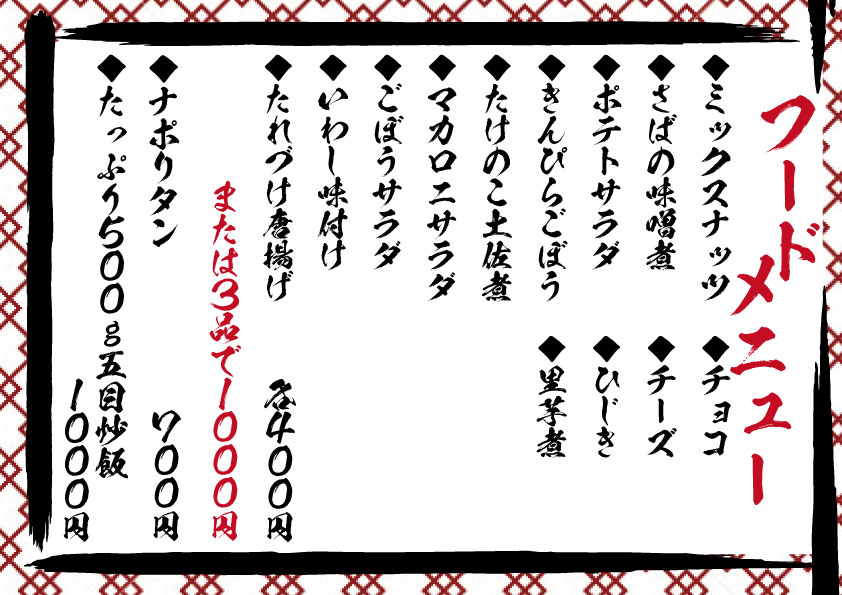 フードメニュー
◆ミックスナッツ
◆チョコ
◆さばの味噌煮
◆チーズ
◆ポテトサラダ
◆ひじき
◆きんぴらごぼう
◆里芋煮
◆たけのこ土佐煮
◆マカロニサラダ
◆ごぼうサラダ
◆いわし味付け
◆たれづけ唐揚げ
各400円
または3品で1000円
◆ナポリタン
700円
◆たっぷり500g五目炒飯
1000円